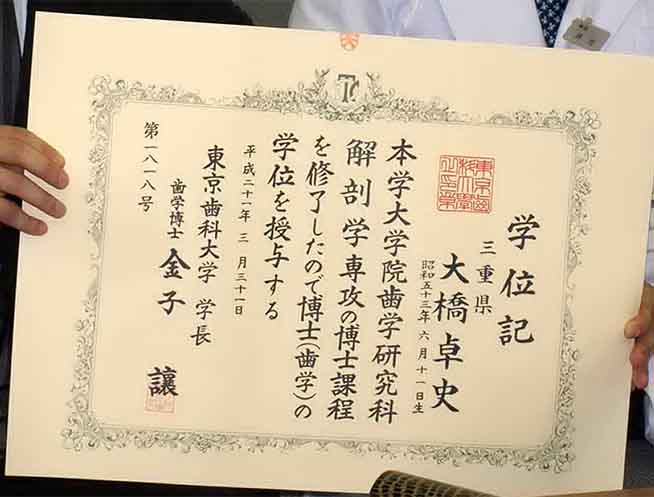 学位記
三重県
大橋卓史
昭和五十三年六月十一日生
本学大学院歯学研究科
解剖学専攻の博士課程
を修了したので博士(歯学)の
学位を授与する
平成二十一年三月三十一日
東京歯科大学 学長
歯学博士 金子 譲
第一八一八号